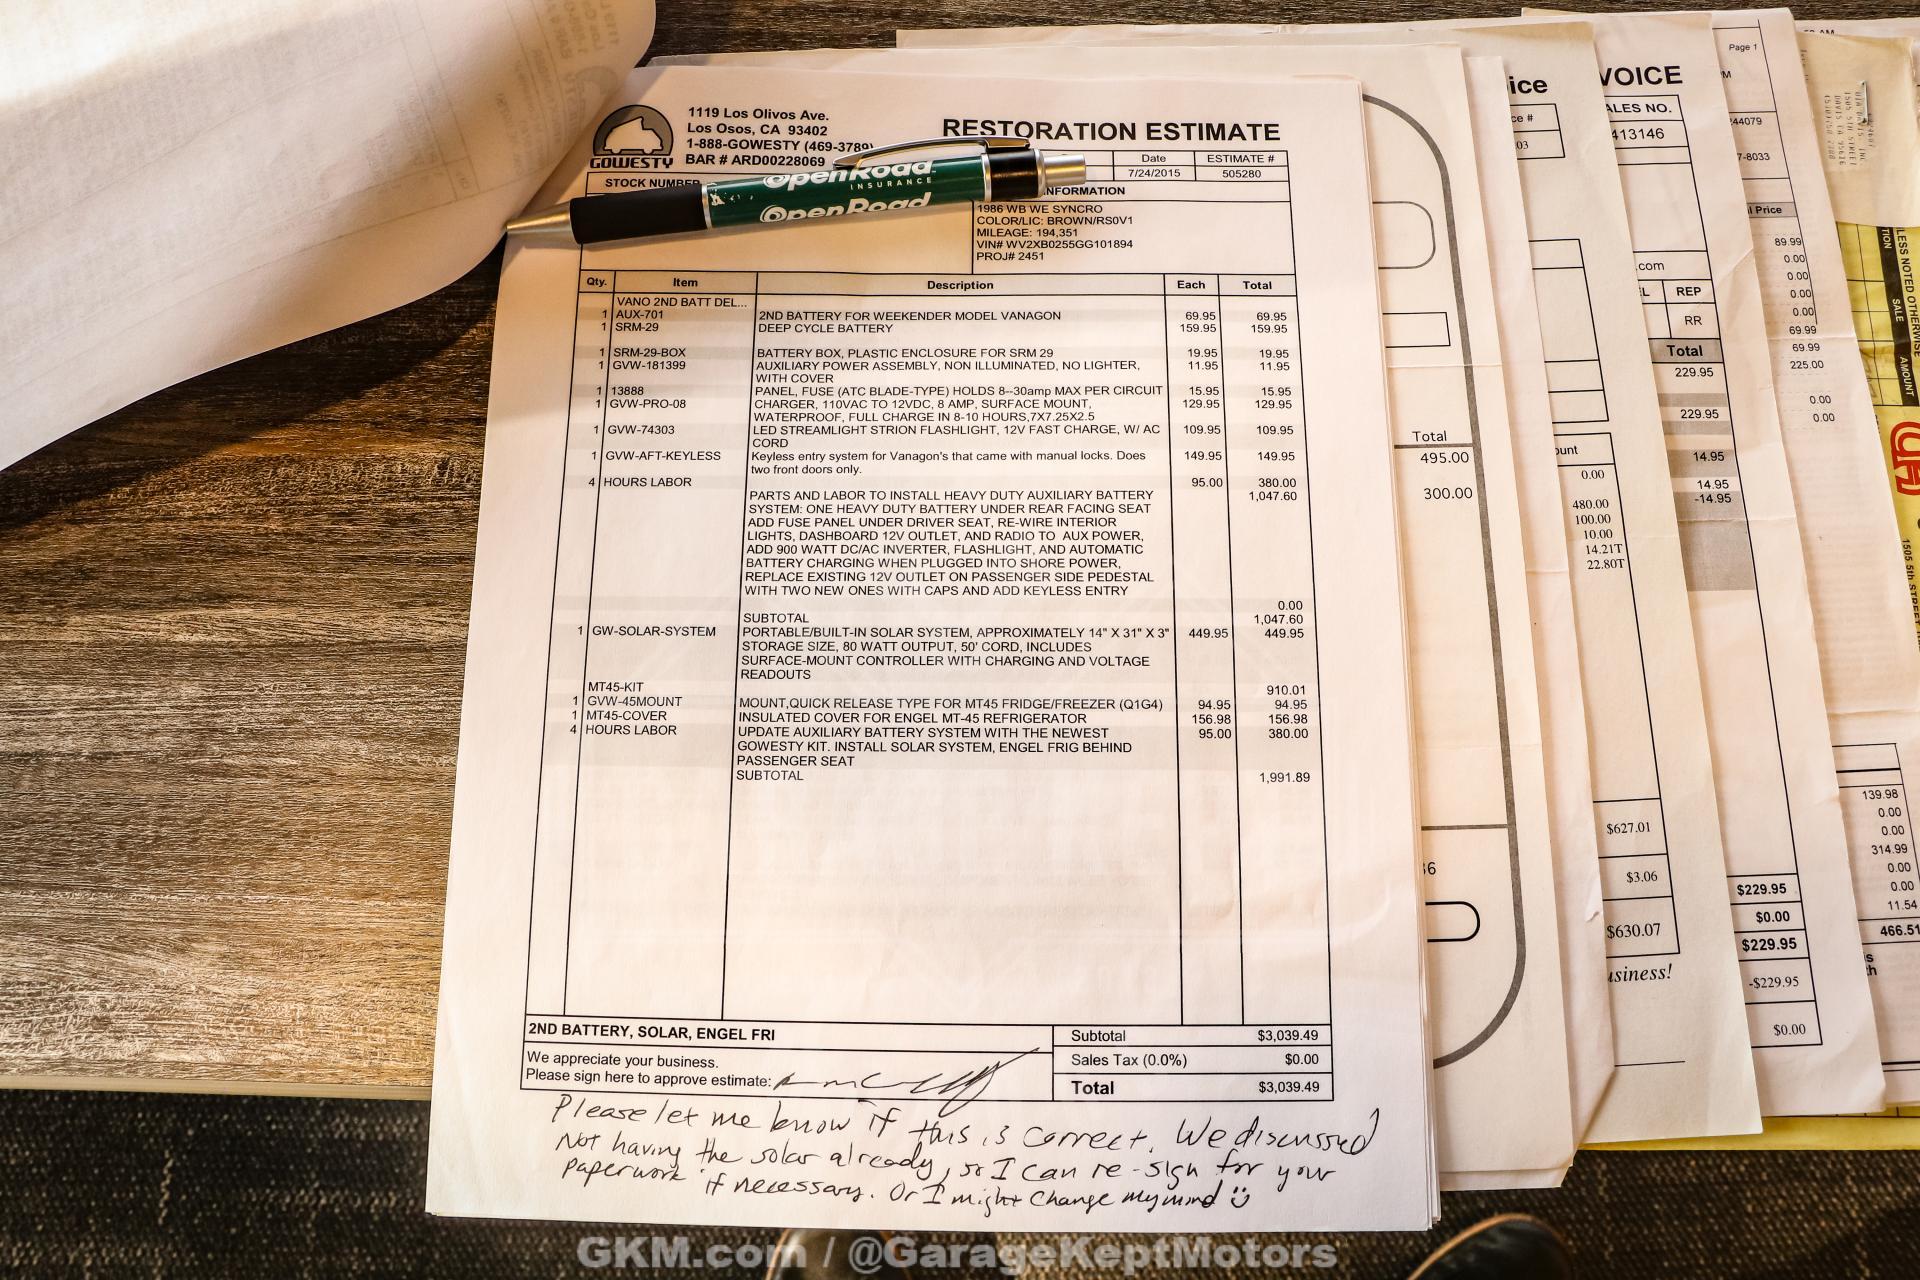 1119 Los Olivos Ave.
Los Osos, CA 93402
1-888-GOWESTY (469-3789)
BAR # ARD00228069
GOWESTY
RESTORATION ESTIMATE
Date ESTIMATE #
7/24/2015 505280
STOCK NUMBER
INFORMATION
OpenRoad
INSURANCE
OpenRoad
1986 WB WE SYNCRO
COLOR/LIC: BROWN/RS0V1
MILEAGE: 194,351
VIN# WV2XB0255GG101894
PROJ# 2451
Qty. Item Description Each Total
VANO 2ND BATT DEL...
1 AUX-701 2ND BATTERY FOR WEEKENDER MODEL VANAGON 69.95 69.95
1 SRM-29 DEEP CYCLE BATTERY 159.95 159.95
1 SRM-29-BOX BATTERY BOX, PLASTIC ENCLOSURE FOR SRM 29 19.95 19.95
1 GVW-181399 AUXILIARY POWER ASSEMBLY, NON ILLUMINATED, NO LIGHTER, 11.95 11.95
WITH COVER
1 13888 PANEL, FUSE (ATC BLADE-TYPE) HOLDS 8--30amp MAX PER CIRCUIT 15.95 15.95
1 GVW-PRO-08 CHARGER, 110VAC TO 12VDC, 8 AMP, SURFACE MOUNT, 129.95 129.95
WATERPROOF, FULL CHARGE IN 8-10 HOURS,7X7.25X2.5
1 GVW-74303 LED STREAMLIGHT STRION FLASHLIGHT, 12V FAST CHARGE, W/ AC 109.95 109.95
CORD
1 GVW-AFT-KEYLESS Keyless entry system for Vanagon's that came with manual locks. Does 149.95 149.95
two front doors only.
4 HOURS LABOR 95.00 380.00
PARTS AND LABOR TO INSTALL HEAVY DUTY AUXILIARY BATTERY 1,047.60
SYSTEM: ONE HEAVY DUTY BATTERY UNDER REAR FACING SEAT
ADD FUSE PANEL UNDER DRIVER SEAT, RE-WIRE INTERIOR
LIGHTS, DASHBOARD 12V OUTLET, AND RADIO TO AUX POWER,
ADD 900 WATT DC/AC INVERTER, FLASHLIGHT, AND AUTOMATIC
BATTERY CHARGING WHEN PLUGGED INTO SHORE POWER,
REPLACE EXISTING 12V OUTLET ON PASSENGER SIDE PEDESTAL
WITH TWO NEW ONES WITH CAPS AND ADD KEYLESS ENTRY
0.00
SUBTOTAL 1,047.60
1 GW-SOLAR-SYSTEM PORTABLE/BUILT-IN SOLAR SYSTEM, APPROXIMATELY 14" X 31" X 3" 449.95 449.95
STORAGE SIZE, 80 WATT OUTPUT, 50' CORD, INCLUDES
SURFACE-MOUNT CONTROLLER WITH CHARGING AND VOLTAGE
READOUTS
MT45-KIT 910.01
1 GVW-45MOUNT MOUNT,QUICK RELEASE TYPE FOR MT45 FRIDGE/FREEZER (Q1G4) 94.95 94.95
1 MT45-COVER INSULATED COVER FOR ENGEL MT-45 REFRIGERATOR 156.98 156.98
4 HOURS LABOR UPDATE AUXILIARY BATTERY SYSTEM WITH THE NEWEST 95.00 380.00
GOWESTY KIT. INSTALL SOLAR SYSTEM, ENGEL FRIG BEHIND
PASSENGER SEAT
SUBTOTAL 1,991.89
2ND BATTERY, SOLAR, ENGEL FRI
Subtotal $3,039.49
We appreciate your business.
Sales Tax (0.0%) $0.00
Please sign here to approve estimate:
Total $3,039.49
Please let me know if this is correct. We discussed
Not having the solar already, so I can re-sign for your
paperwork if necessary. Or I might change my mind
Total
495.00
300.00
ice
ce #
03
ount
0.00
480.00
100.00
10.00
14.21T
22.80T
$627.01
$3.06
$630.07
usiness!
VOICE
ALES NO.
413146
.com
L REP
RR
Total
229.95
229.95
14.95
14.95
-14.95
$229.95
$0.00
$229.95
-$229.95
$0.00
Page 1
44079
7-8033
l Price
89.99
0.00
0.00
0.00
0.00
69.99
69.99
225.00
0.00
0.00
139.98
0.00
0.00
314.99
0.00
0.00
11.54
466.51
LESS NOTED OTHERWISE
SALE
AMOUNT
1505 5th STREET
GKM.com / @GarageKeptMotors